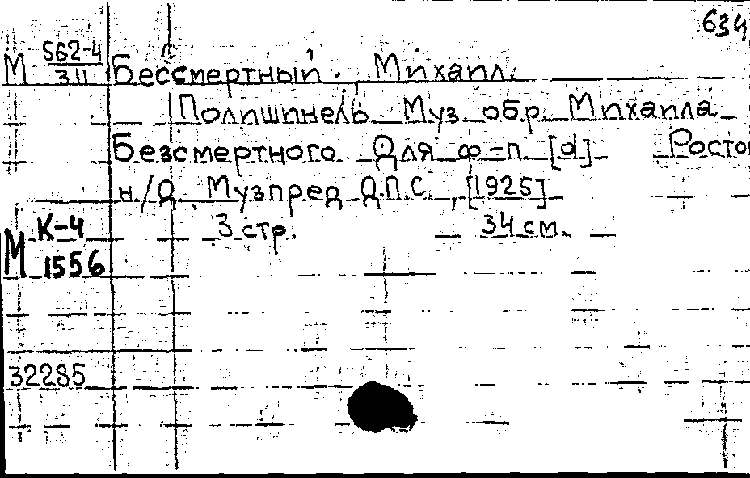 634
М 562-4 Бессмертный. Михаил.
311
Полишинель Муз. обр. Михаила
Безсмертного Для ф-п. [d] Росто
н/Д. Музпред Д.П.С., [1925]
М К-4 3 стр. 34 см.
1556
32285